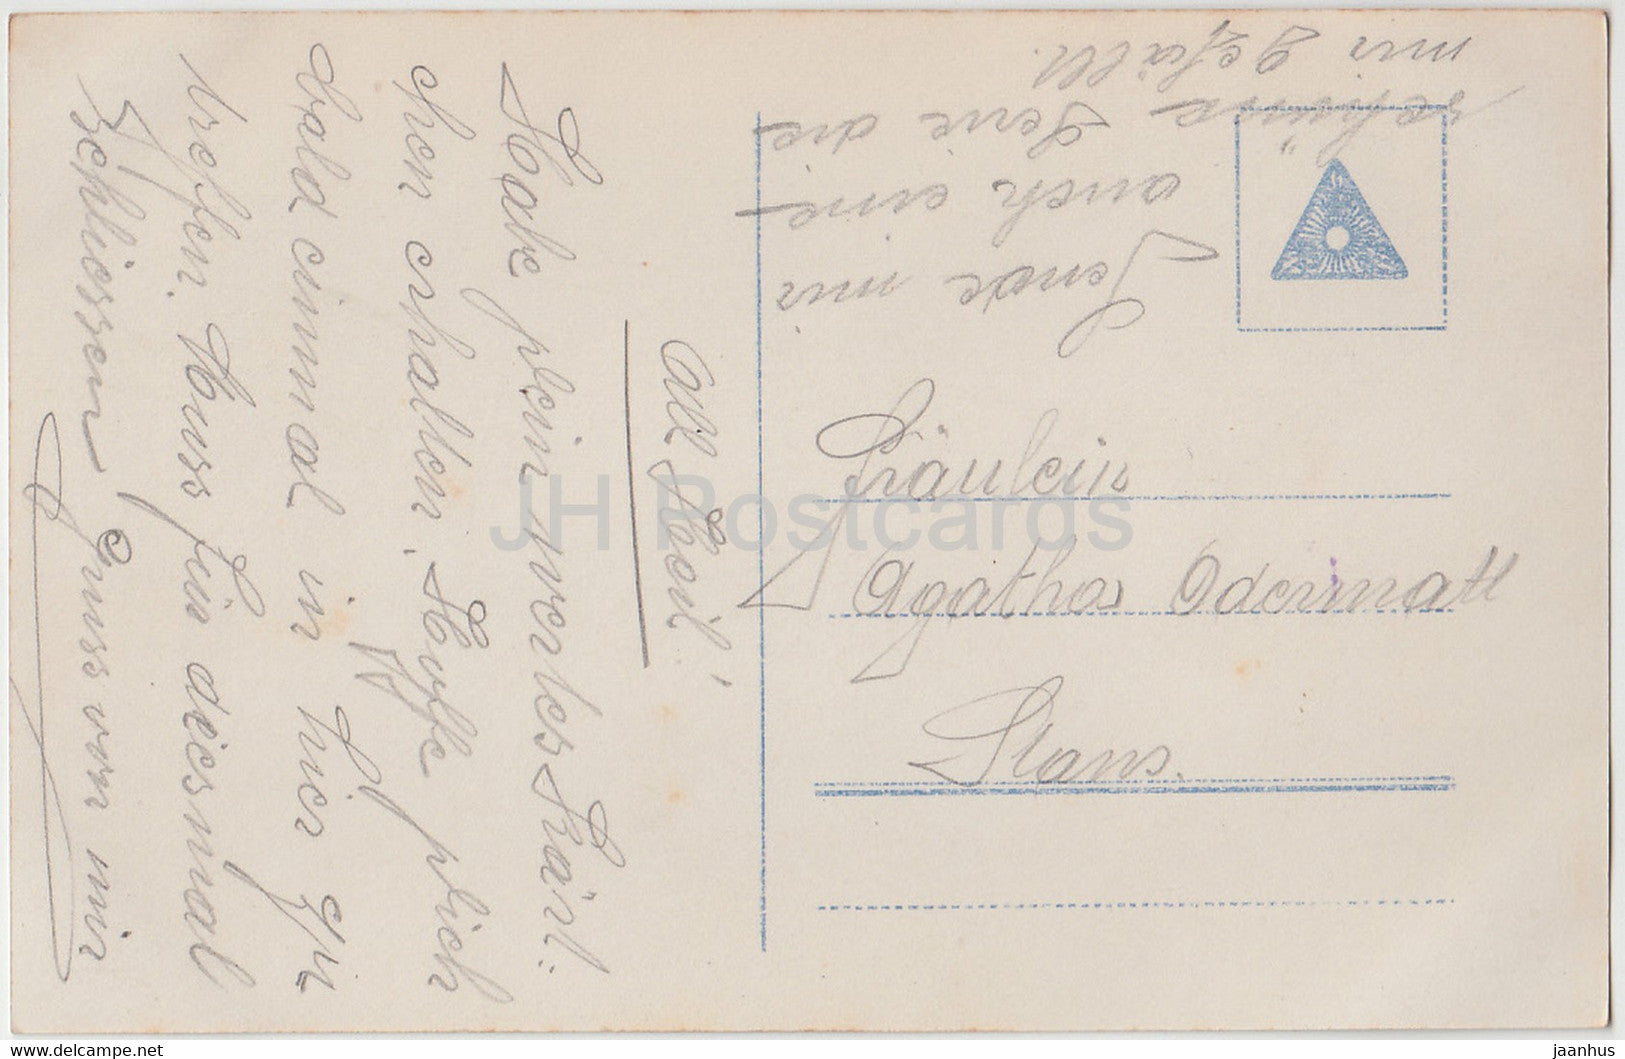 All Heil!
Habe Dein wertes Kärt:
chen erhalten. Hoffe Dich
bald einmal in hier zu
treffen. Muss für diesmal
schliessen Gruss von mir
Sende mir
auch eine
schöne Serie die
mir gefällt.
Fräulein
Agatha Odermatt
Stans.
JH Postcards
www.delcampe.net
jaanhus